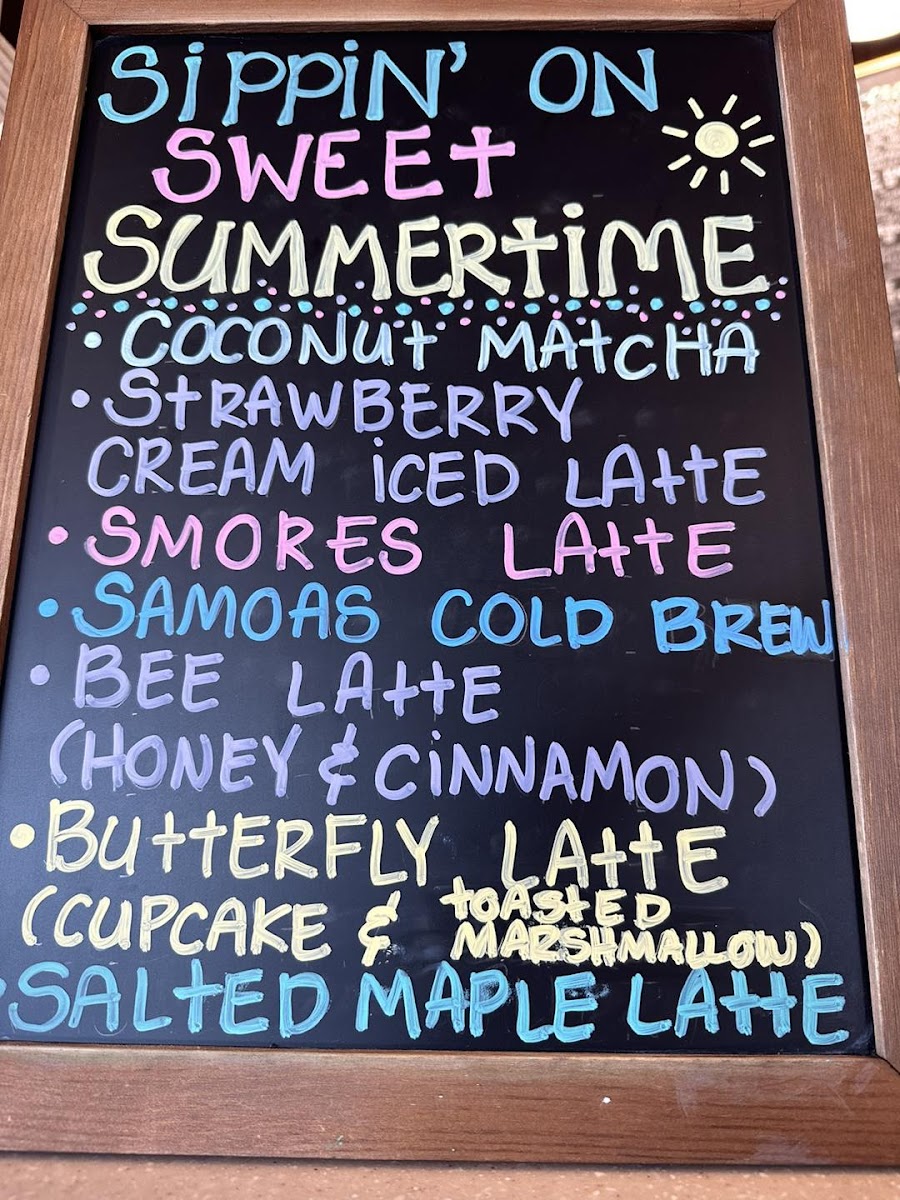 SiPPiN' ON
SWEEt
SUMMERtiME
• COCONUt MAtCHA
• StRAWBERRY
CREAM iCED LAttE
• SMORES LAttE
• SAMOAS COLD BREW
• BEE LAttE
(HONEY & CiNNAMON)
• BUttERFLY LAttE
(CUPCAKE & tOAStED
MARSHMALLOW)
• SALtED MAPLE LAttE